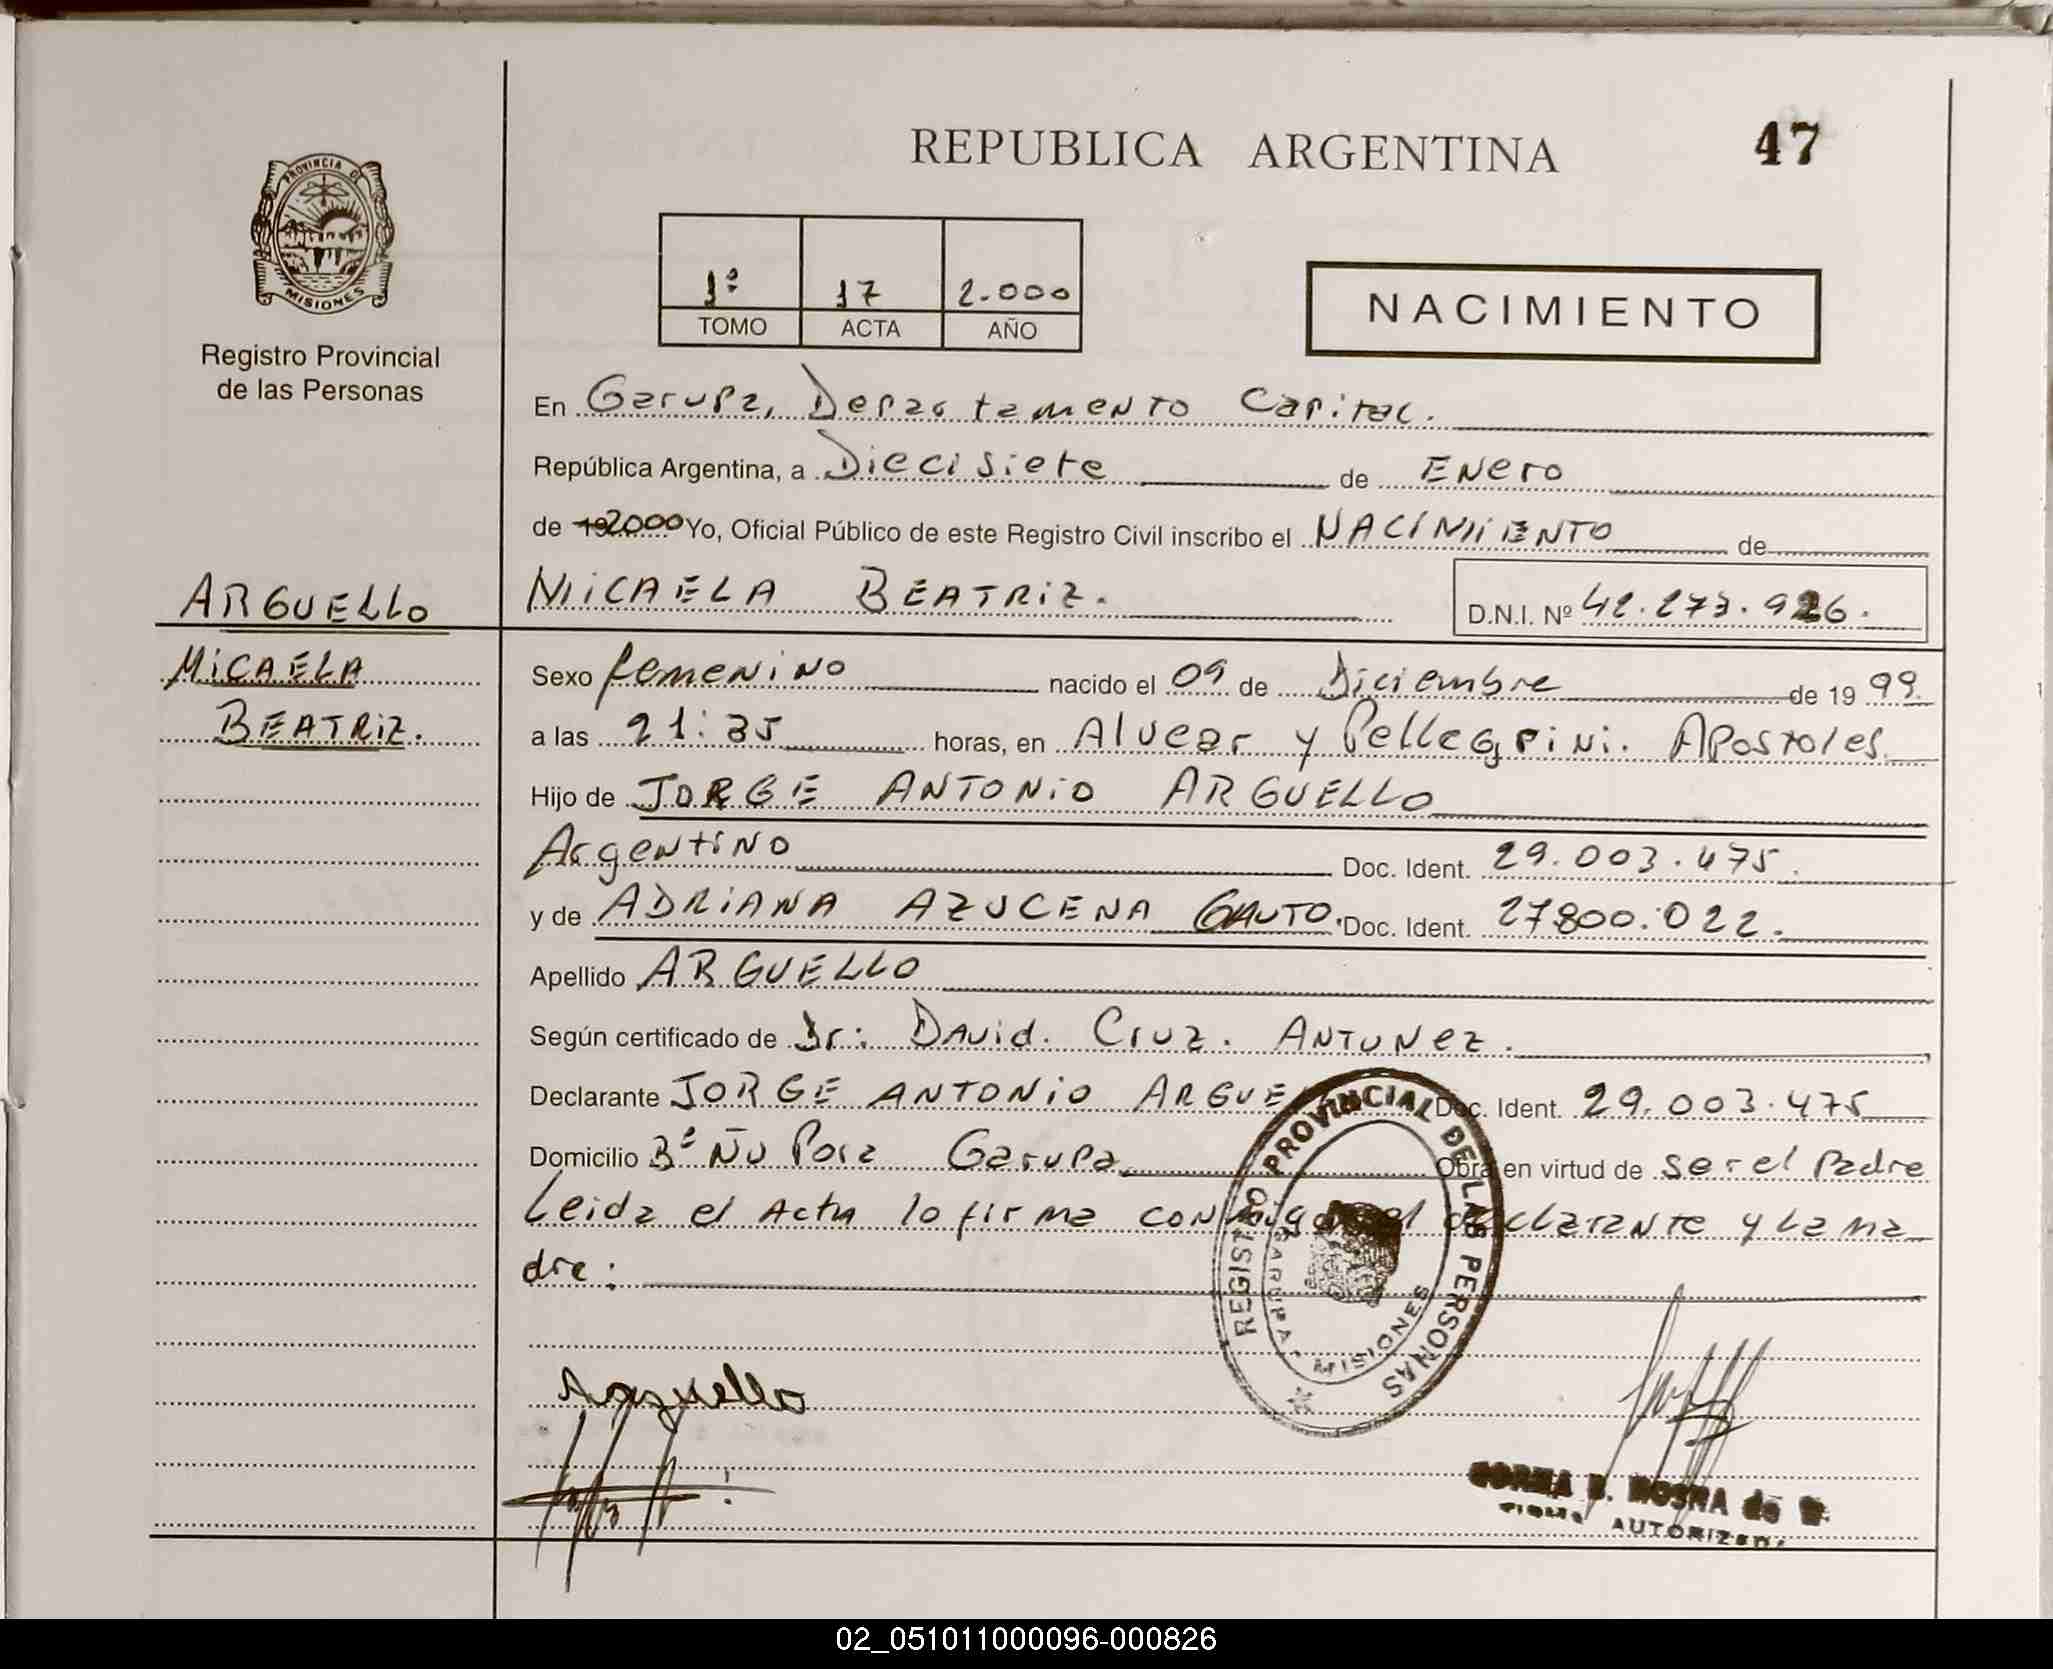 REPUBLICA ARGENTINA
47
PROVINCIA DE
MISIONES
Registro Provincial
de las Personas
1º 17 2.000
TOMO ACTA AÑO
NACIMIENTO
En Garupa, Departamento Capital.
República Argentina, a Diecisiete de Enero
de 192000 Yo, Oficial Público de este Registro Civil inscribo el NACIMIENTO de
ARGUELLO
MICAELA BEATRIZ.
D.N.I. Nº 42.273.926.
MICAELA
BEATRIZ.
Sexo femenino nacido el 09 de Diciembre de 1999
a las 21:35 horas, en Alvear y Pellegrini. Apostoles
Hijo de JORGE ANTONIO ARGUELLO
Argentino Doc. Ident. 29.003.475.
y de ADRIANA AZUCENA GAUTO. Doc. Ident. 27800.022.
Apellido ARGUELLO
Según certificado de Dr: David. Cruz. Antunez.
Declarante JORGE ANTONIO ARGUE Doc. Ident. 29.003.475
Domicilio Bº Ñu Pora Garupa Obra en virtud de ser el Padre
Leida el Acta lo firma conmigo el declarante y la ma
dre:
REGISTRO PROVINCIAL DE LAS PERSONAS
GARUPA - MISIONES
Arguello
AUTORIZADA
02_051011000096-000826